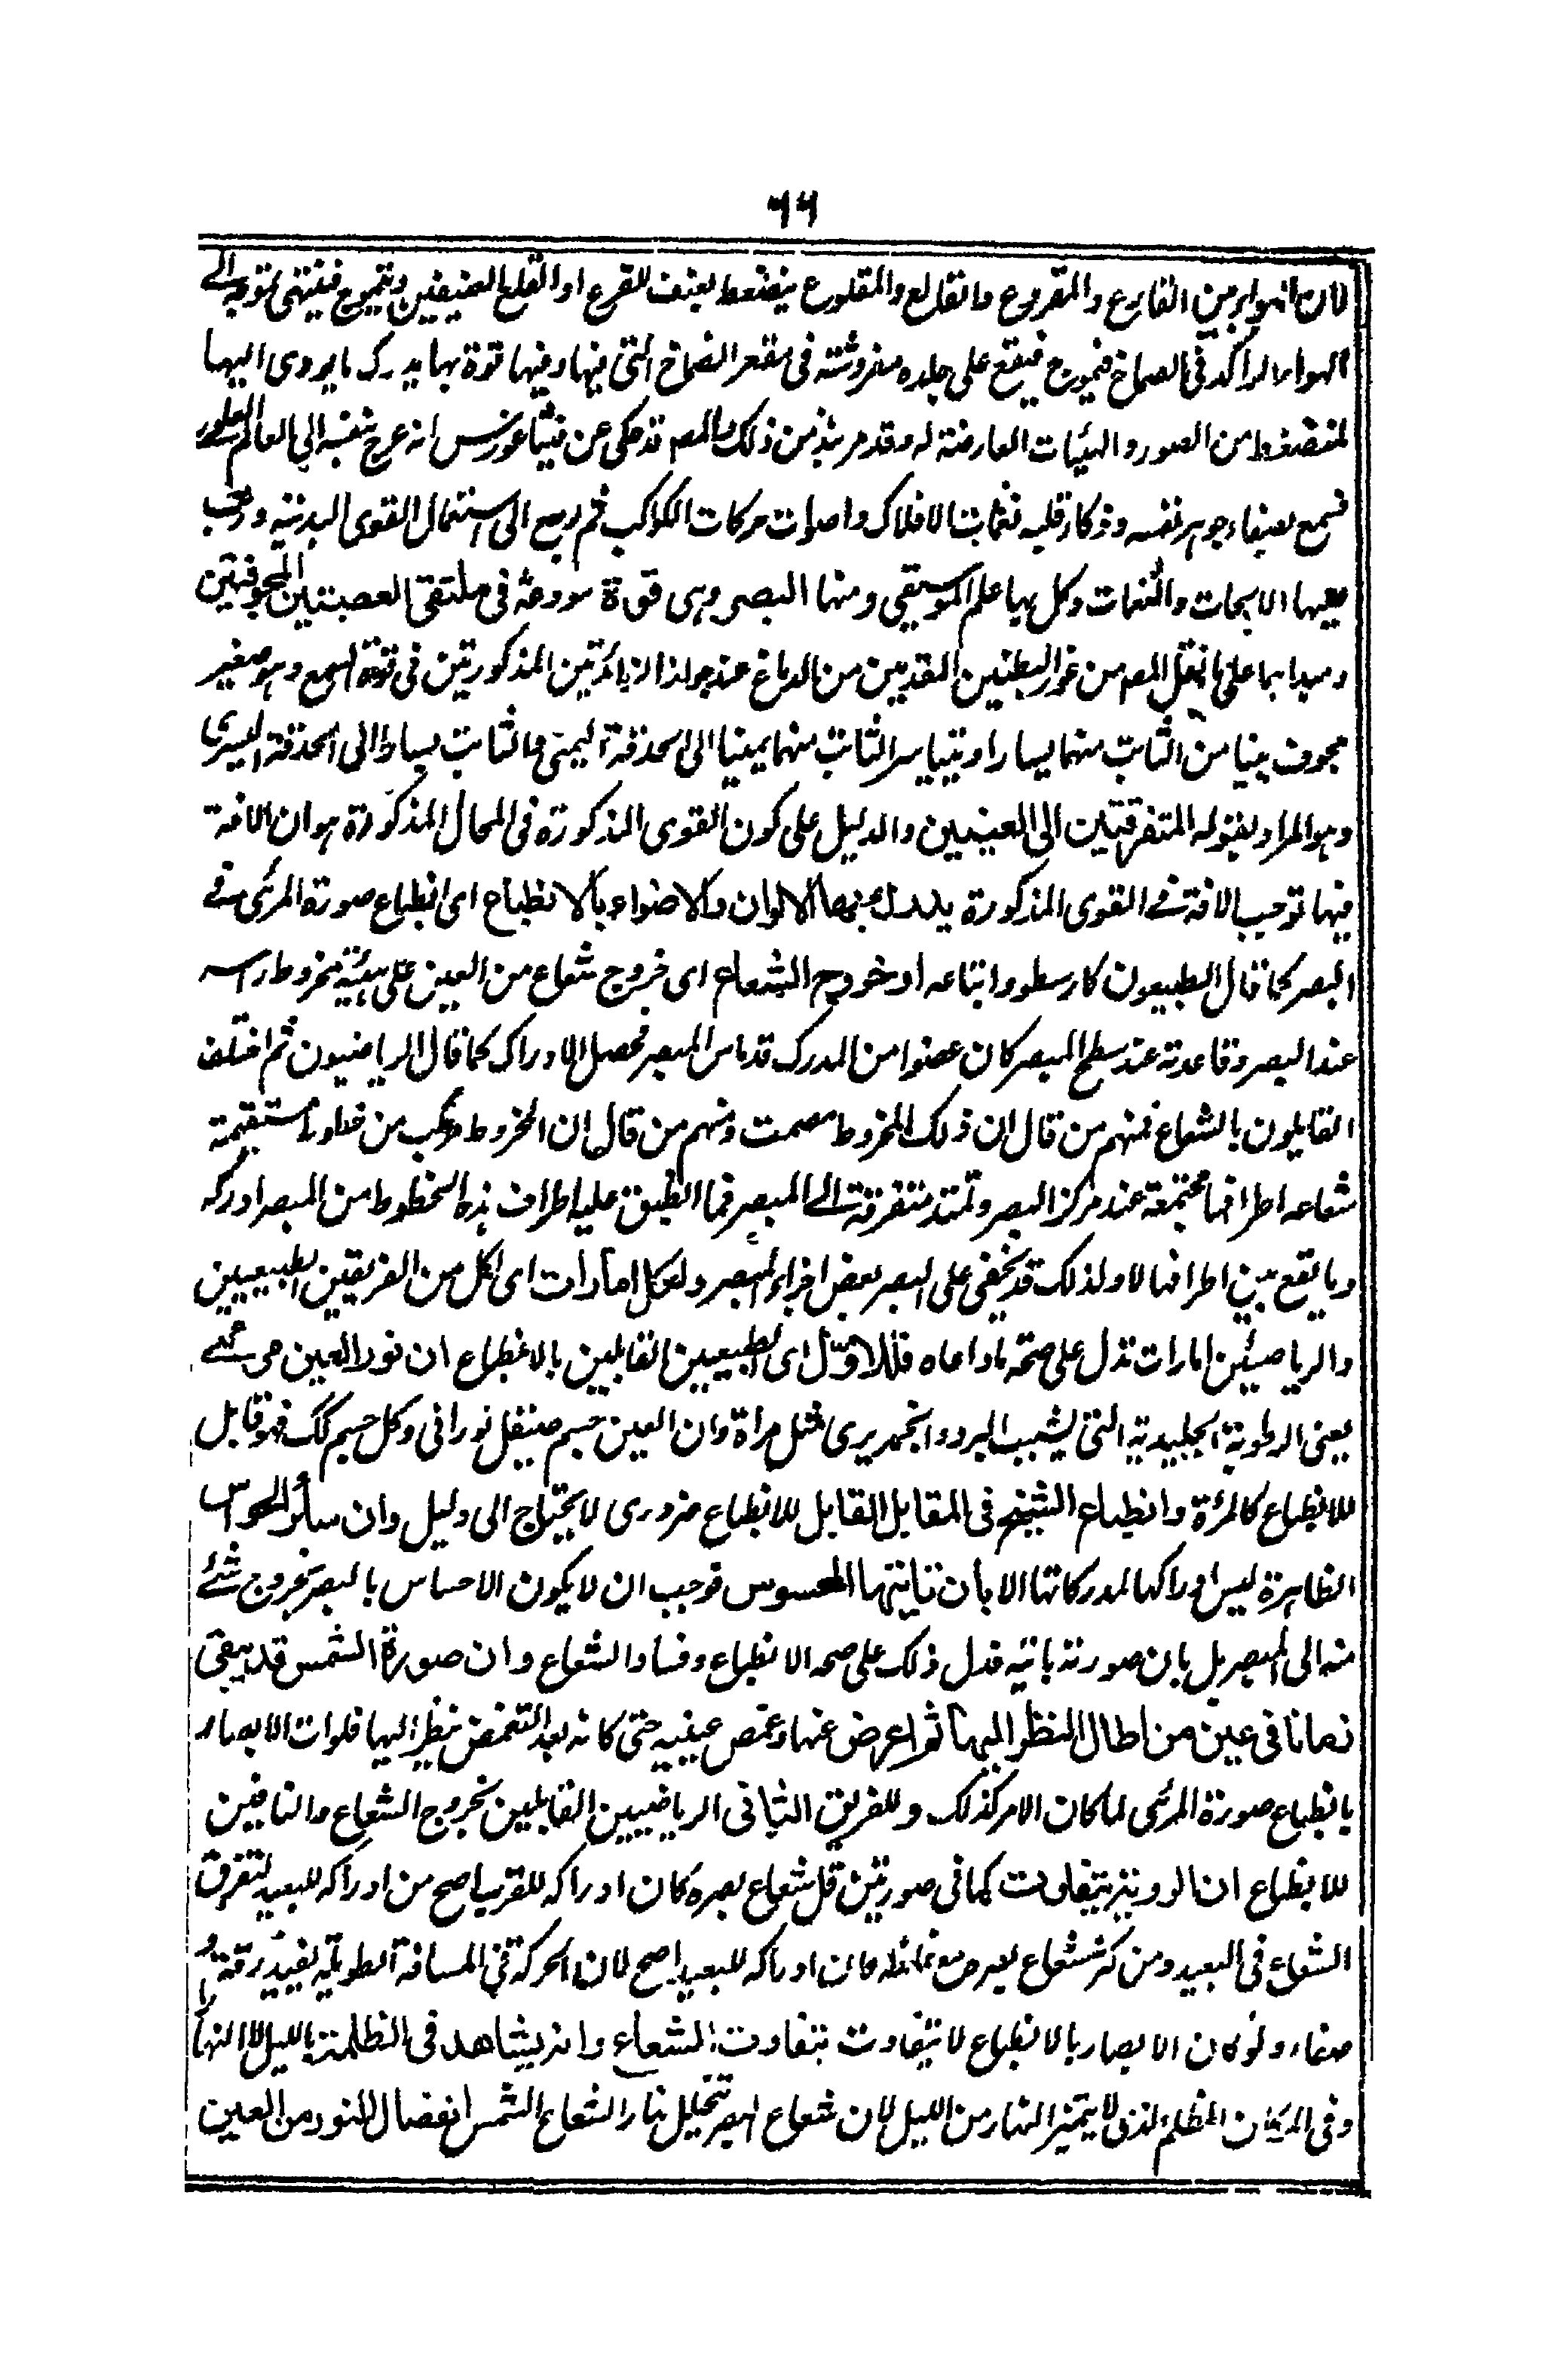 ٦٦
لان الهواء بين القارع والمقروع والقالع والمقلوع ينضغط بعنف للقرع او القلع العنيفين ويتموج فينتهى تموجه الى
الهواء الراكد فى الصماخ فيموج فيقع على جلده مفروشته فى مقعر الصماخ التى فيها وفيها قوة بها يدرك ما يودى اليها
المنضغط من الصور والهيئات العارضة له وقد مر نبذ من ذلك والمص قد حكى عن فيثاغورس انه عرج بنفسه الى العالم العلوى
فسمع بصفاء جوهر نفسه وذكاء قلبه نغمات الافلاك واصوات حركات الكواكب ثم رجع الى استعمال القوى البدنية ورتب
عليها الالحان والنغمات وكمل بها علم الموسيقى ومنها البصر وهى قوة مودعة فى ملتقى العصبتين المجوفتين
ومبداهما على ما نقل المص من غور البطنين المقدمين من الدماغ عند جوار الزائدتين المذكورتين فى قوة السمع وهو صغير
مجوف يتيامن الثابت منهما يسارا ويتياسر الثابت منهما يمينا الى الحدقة اليمنى والثابت يسارا الى الحدقة اليسرى
وهو المراد بقوله المتفرقتين الى العينين والدليل على كون القوى المذكورة فى المحال المذكورة هو ان الافة
فيها توجب الافة فى القوى المذكورة يدرك بها الالوان والاضواء بالانطباع اى انطباع صورة المرئى فى
البصر كما قال الطبيعون كارسطو واتباعه او خروج الشعاع اى خروج شعاع من العين على هيئة مخروط راسه
عند البصر وقاعدته عند سطح المبصر كان عضوا من المدرك قد ماس المبصر فحصل الادراك كما قال الرياضيون ثم اختلف
القايلون بالشعاع فمنهم من قال ان ذلك المخروط مصمت ومنهم من قال ان المخروط مركب من خطوط مستقيمة
شعاعه اطرافها مجتمعة عند مركز البصر وتمتد متفرقة الى المبصر فما انطبق عليه اطراف هذه الخطوط من المبصر ادركه
وما يقع بين اطرافها لا ولذلك قد يخفى على البصر بعض اجزاء المبصر ولكل امارات اى لكل من الفريقين الطبيعيين
والرياضيين امارات تدل على صحة ما ادعاه فللاول اى الطبيعيين القايلين بالانطباع ان نور العين مرئى
يعنى الرطوبة الجليدية التى يشبه البرد والجمد يرى مثل مرأة وان العين جسم صيقل نورانى وكل جسم كك فهو قابل
للانطباع كالمرأة وانطباع الشبح فى المقابل القابل للانطباع ضرورى لا يحتاج الى دليل وان سائر الحواس
الظاهرة ليس ادراكها لمدركاتها الا بأن تاتيها المحسوس فوجب ان لا يكون الاحساس بالبصر بخروج شئ
منه الى المبصر بل بان صورته ياتيه فدل ذلك على صحه الانطباع وفساد الشعاع وان صورة الشمس قد يبقى
زمانا فى عين من اطال النظر اليها ثم اعرض عنها وغمض عينيه حتى كانه بعد التغمض ينظر اليها فلولا ان الابصار
بانطباع صورة المرئى لما كان الامر كذلك وللفريق الثانى الرياضيين القايلين بخروج الشعاع والنافين
للانطباع ان الروية يتفاوت كما فى صورتين قل شعاع بصره كان ادراكه للقريب اصح من ادراكه للبعيد لتفرق
الشعاع فى البعيد ومن كثر شعاع بصره مع غلظه كان ادراكه للبعيد اصح لان الحركة فى المسافة الطويلة يفيد رقة و
صفاء ولو كان الابصار بالانطباع لا يتفاوت بتفاوت الشعاع وانه يشاهد فى الظلمة بالليل لا النهار
وفى المكان المظلم الذى لا يتميز النهار من الليل لان شعاع البصر تتحلل نهارا لشعاع الشمس انفصال النور من العين